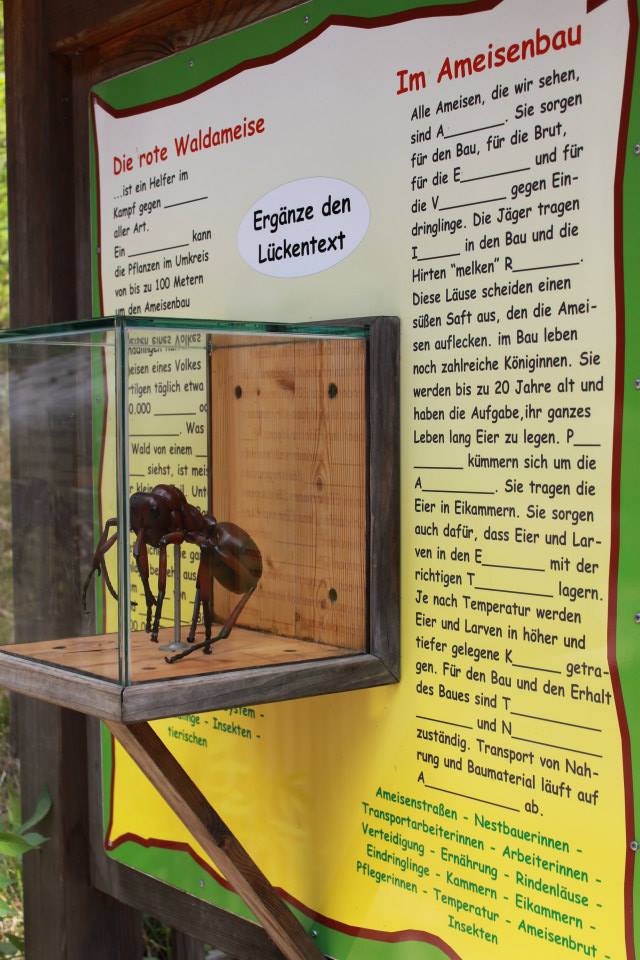 Die rote Waldameise
...ist ein Helfer im
Kampf gegen ______
aller Art.
Ein _________ kann
die Pflanzen im Umkreis
von bis zu 100 Metern
um den Ameisenbau
eines Volkes
tilgen täglich etwa
0.000 ______
______. Was
Wald von einem
___ siehst, ist meis
Ergänze den
Lückentext
Im Ameisenbau
Alle Ameisen, die wir sehen,
sind A________. Sie sorgen
für den Bau, für die Brut,
für die E_________ und für
die V_________ gegen Ein-
dringlinge. Die Jäger tragen
I_____ in den Bau und die
Hirten "melken" R________.
Diese Läuse scheiden einen
süßen Saft aus, den die Amei-
sen auflecken. im Bau leben
noch zahlreiche Königinnen. Sie
werden bis zu 20 Jahre alt und
haben die Aufgabe,ihr ganzes
Leben lang Eier zu legen. P___
______ kümmern sich um die
A_________. Sie tragen die
Eier in Eikammern. Sie sorgen
auch dafür, dass Eier und Lar-
ven in den E________ mit der
richtigen T__________ lagern.
Je nach Temperatur werden
Eier und Larven in höher und
tiefer gelegene K______ getra-
gen. Für den Bau und den Erhalt
des Baues sind T___________
_______ und N___________
zuständig. Transport von Nah-
rung und Baumaterial läuft auf
A____________ ab.
Ameisenstraßen - Nestbauerinnen -
Transportarbeiterinnen - Arbeiterinnen -
Verteidigung - Ernährung - Rindenläuse -
Eindringlinge - Kammern - Eikammern -
Pflegerinnen - Temperatur - Ameisenbrut -
Insekten
- Insekten -
tierischen